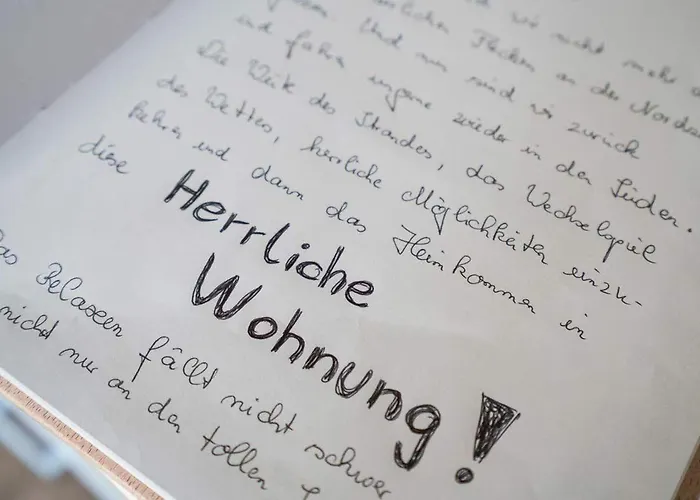 wir nicht mehr
Flecken an der Nordsee
Und nun sind wir zurück
und fahren ungern wieder in den Süden.
Die Weite des Strandes, das Wechselspiel
des Wetters, herrliche Möglichkeiten einzu-
kehren und dann das Heimkommen in
diese Herrliche
Wohnung!
Das Belassen fällt nicht schwer
nicht nur an den tollen